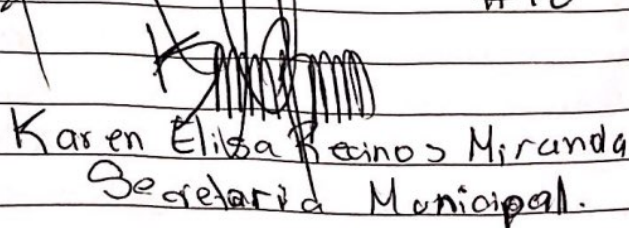 Karen Elilsa Recinos Miranda
Secretaria Municipal.